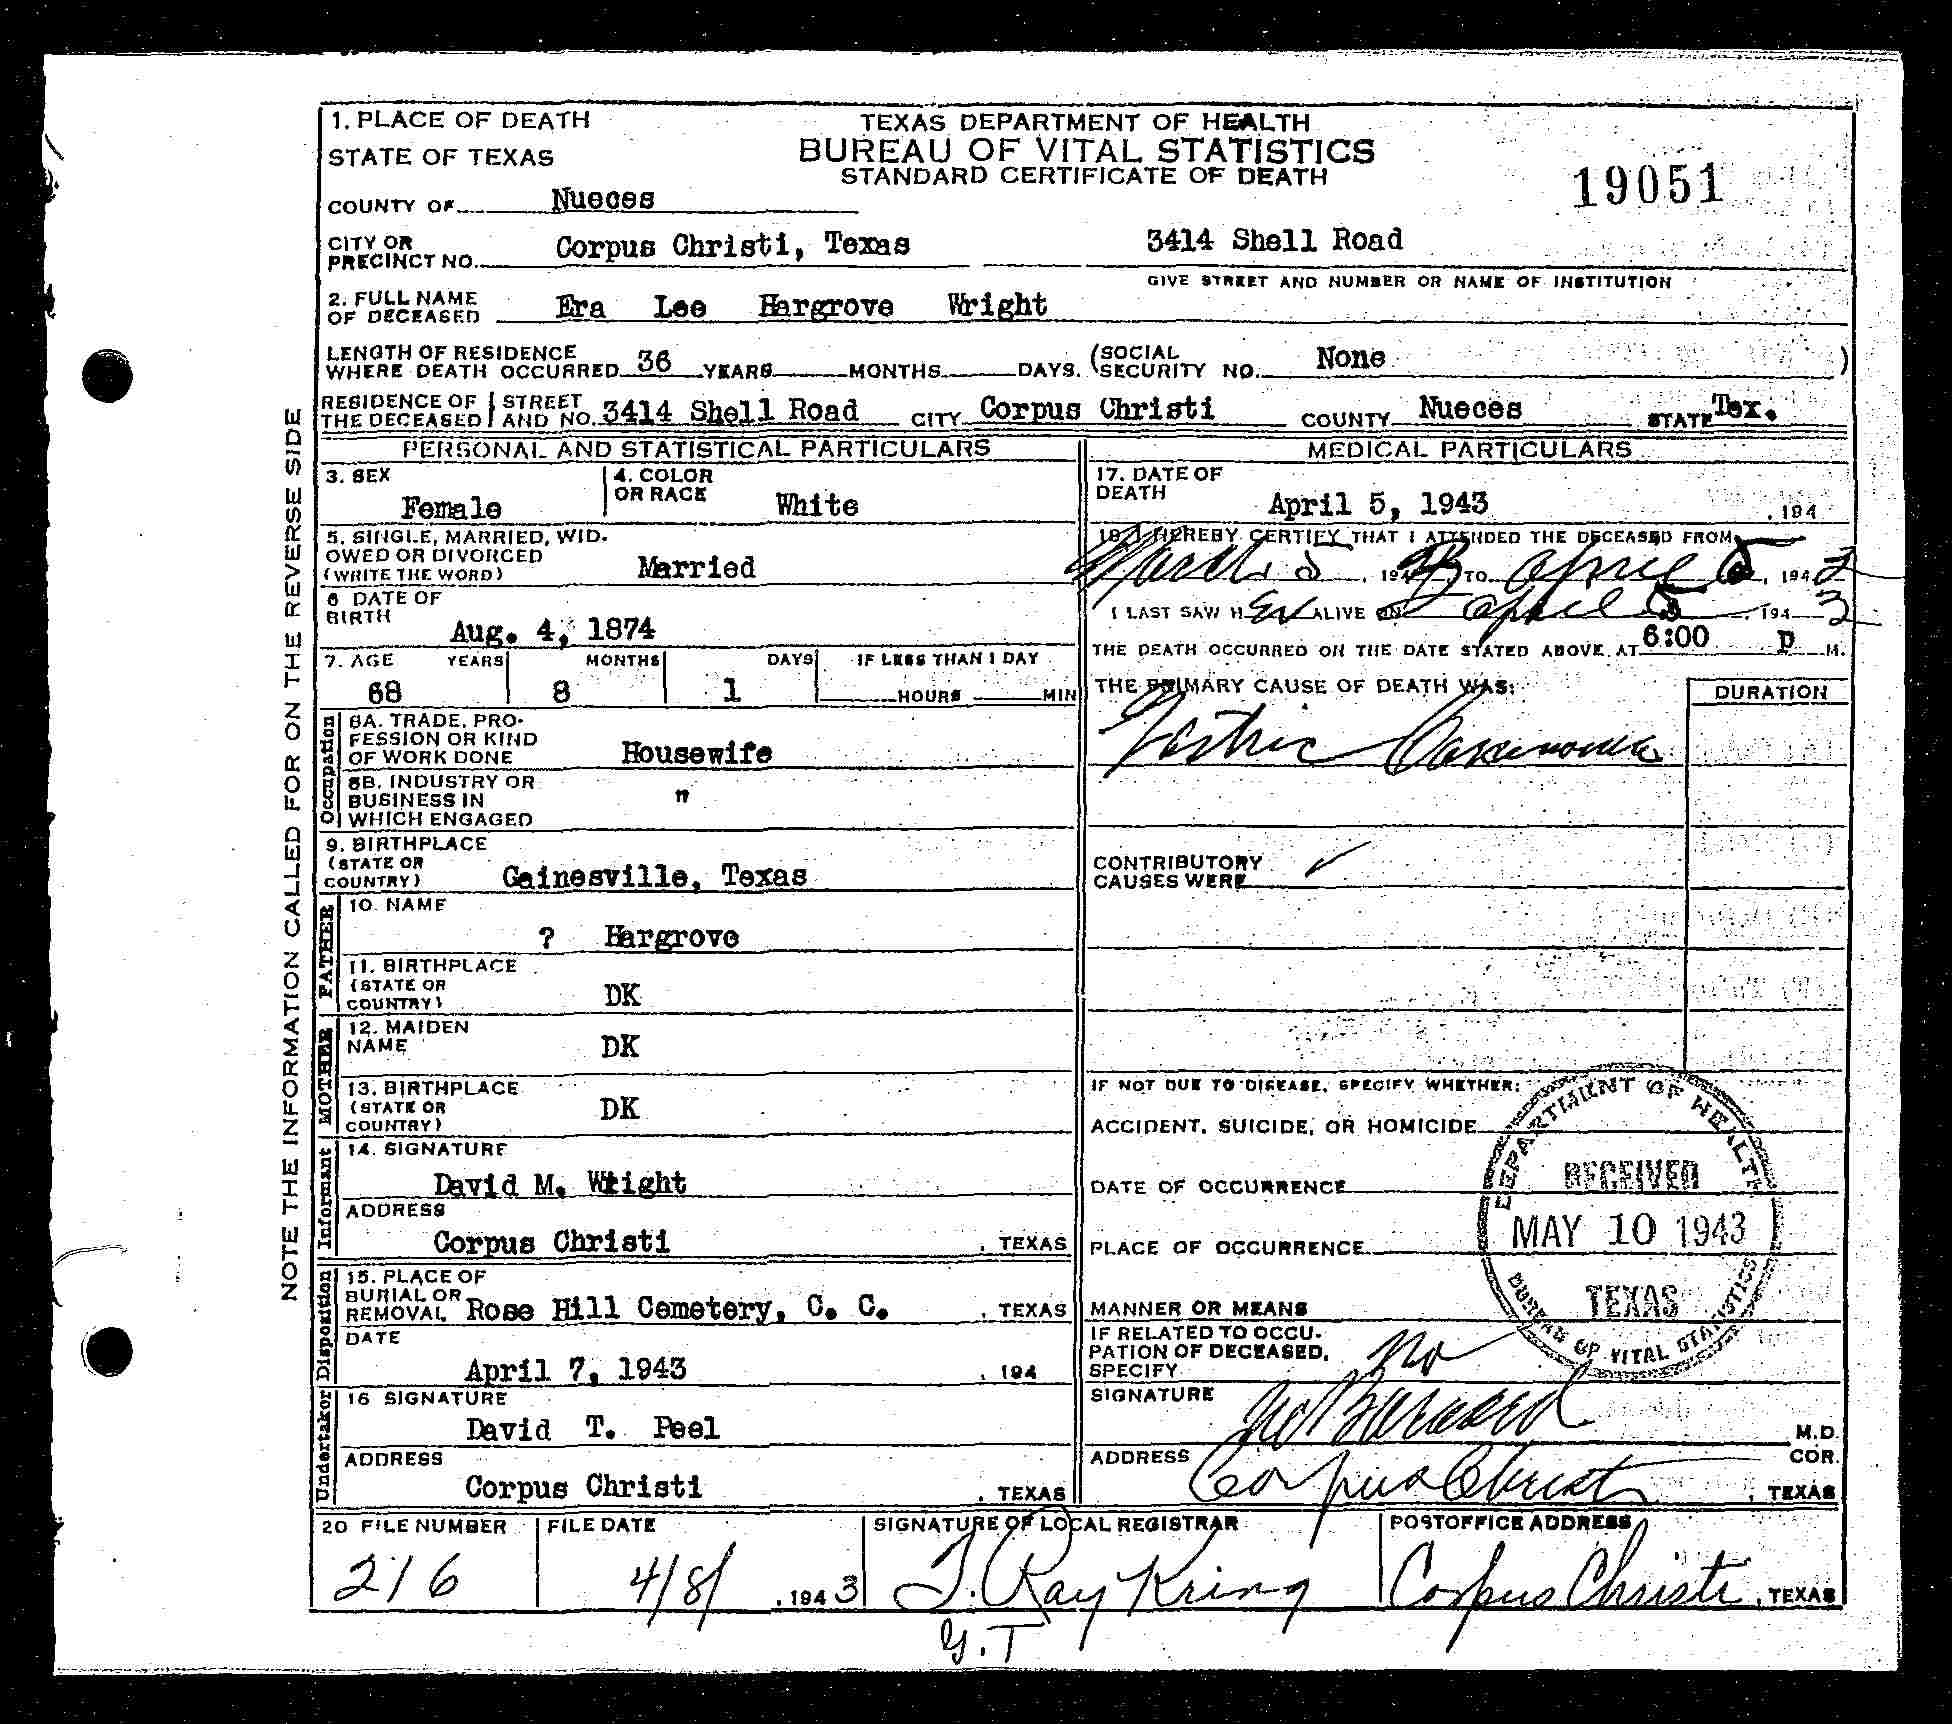 1. PLACE OF DEATH
STATE OF TEXAS
TEXAS DEPARTMENT OF HEALTH
BUREAU OF VITAL STATISTICS
STANDARD CERTIFICATE OF DEATH
19051
COUNTY OF Nueces
CITY OR PRECINCT NO. Corpus Christi, Texas 3414 Shell Road
GIVE STREET AND NUMBER OR NAME OF INSTITUTION
2. FULL NAME OF DECEASED Era Lee Hargrove Wright
LENGTH OF RESIDENCE WHERE DEATH OCCURRED 36 YEARS MONTHS DAYS. (SOCIAL SECURITY NO. None )
RESIDENCE OF THE DECEASED STREET AND NO. 3414 Shell Road CITY Corpus Christi COUNTY Nueces STATE Tex.
PERSONAL AND STATISTICAL PARTICULARS
3. SEX Female
4. COLOR OR RACE White
5. SINGLE, MARRIED, WIDOWED OR DIVORCED (WRITE THE WORD) Married
6 DATE OF BIRTH Aug. 4, 1874
7. AGE YEARS MONTHS DAYS IF LESS THAN 1 DAY
68 8 1 HOURS MIN
Occupation
8A. TRADE, PROFESSION OR KIND OF WORK DONE Housewife
8B. INDUSTRY OR BUSINESS IN WHICH ENGAGED "
9. BIRTHPLACE (STATE OR COUNTRY) Gainesville, Texas
FATHER
10. NAME ? Hargrove
11. BIRTHPLACE (STATE OR COUNTRY) DK
MOTHER
12. MAIDEN NAME DK
13. BIRTHPLACE (STATE OR COUNTRY) DK
Informant
14. SIGNATURE David M. Wright
ADDRESS Corpus Christi , TEXAS
Disposition
15. PLACE OF BURIAL OR REMOVAL Rose Hill Cemetery, C. C. , TEXAS
DATE April 7, 1943 , 194
Undertaker
16 SIGNATURE David T. Peel
ADDRESS Corpus Christi , TEXAS
MEDICAL PARTICULARS
17. DATE OF DEATH April 5, 1943 , 194
18. I HEREBY CERTIFY THAT I ATTENDED THE DECEASED FROM
March 5, 194 TO April 5, 1943
I LAST SAW HER ALIVE ON April 5, 1943
THE DEATH OCCURRED ON THE DATE STATED ABOVE AT 6:00 P M.
THE PRIMARY CAUSE OF DEATH WAS: DURATION
Gastric Carcinoma
CONTRIBUTORY CAUSES WERE ✓
IF NOT DUE TO DISEASE, SPECIFY WHETHER:
ACCIDENT, SUICIDE, OR HOMICIDE
DATE OF OCCURRENCE
PLACE OF OCCURRENCE
MANNER OR MEANS
IF RELATED TO OCCUPATION OF DECEASED, SPECIFY No
SIGNATURE M.D.
ADDRESS Corpus Christi COR. , TEXAS
DEPARTMENT OF HEALTH
RECEIVED
MAY 10 1943
TEXAS
BUREAU OF VITAL STATISTICS
20 FILE NUMBER 216
FILE DATE 4/8/, 1943
SIGNATURE OF LOCAL REGISTRAR T. Ray Kring
Y.T
POSTOFFICE ADDRESS Corpus Christi, TEXAS
NOTE THE INFORMATION CALLED FOR ON THE REVERSE SIDE